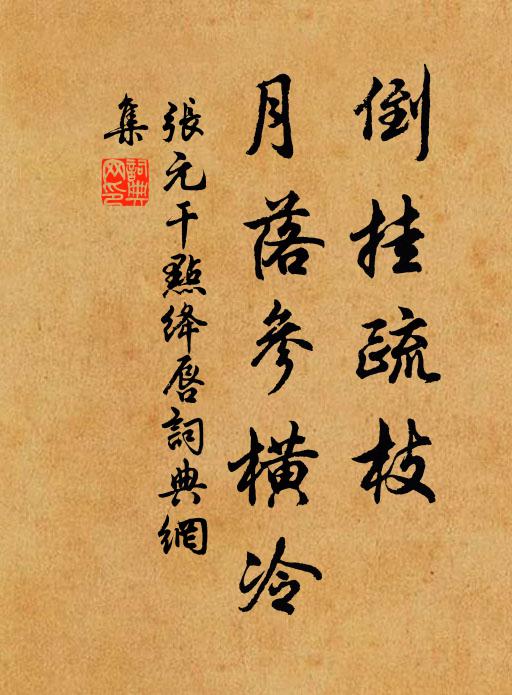 倒挂疏枝
月落參橫冷
張元干點絳唇詞典網
集
詞典
网印